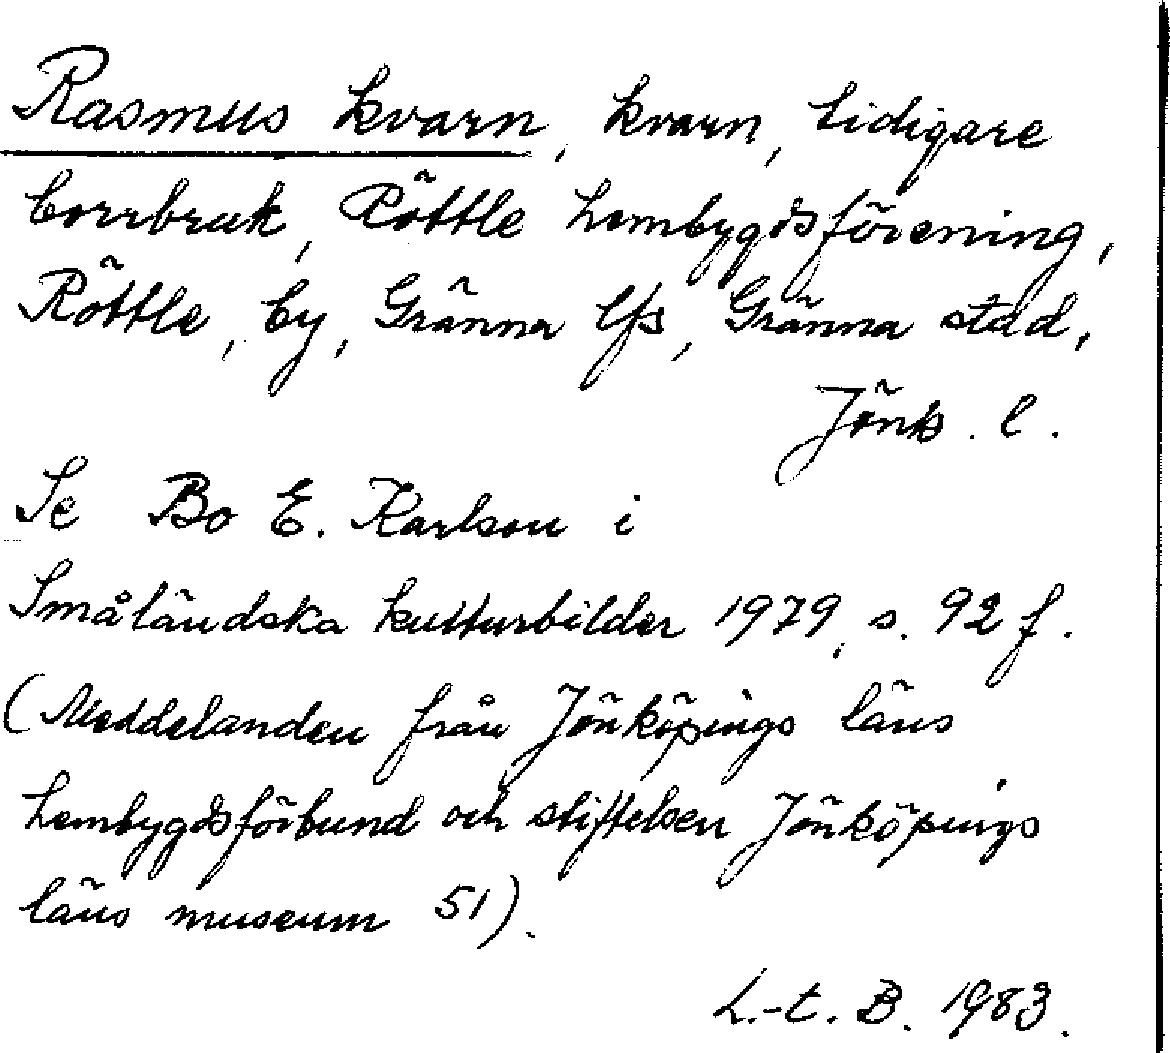 Rasmus kvarn, kvarn, tidigare
borrbruk, Röttle hembygdsförening,
Röttle, by, Gränna lfs, Gränna stad,
Jönk. l.
Se Bo E. Karlson i
Småländska kulturbilder 1979, s. 92 f.
(Meddelanden från Jönköpings läns
hembygdsförbund och stiftelsen Jönköpings
läns museum 51).
L.-t. B. 1983.